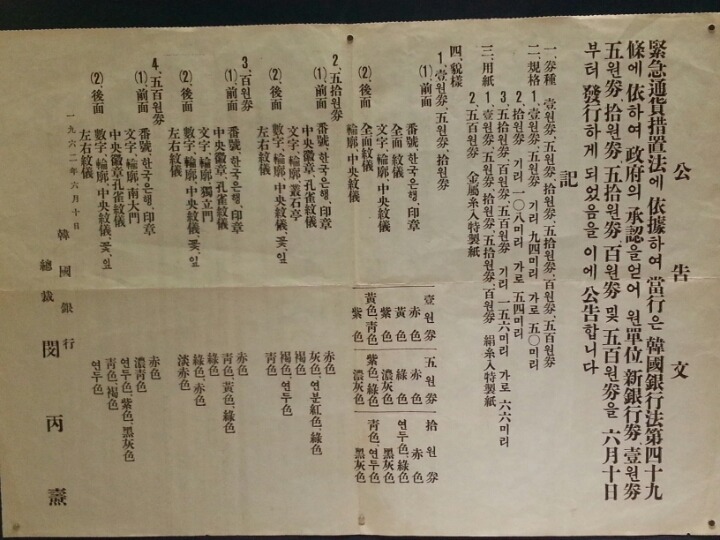 公告文
緊急通貨措置法에 依據하여 當行은 韓國銀行法第四十九
條에 依하여 政府의 承認을얻어 원單位 新銀行券、壹원券
五원券、拾원券、五拾원券、百원券 및 五百원券을 六月十日
부터 發行하게 되었음을 이에 公告합니다
記
一、券種 壹원券、五원券、拾원券、五拾원券、百원券、五百원券
二、規格 1、壹원券、五원券 기리 九四미리 가로 五〇미리
2、拾원券 기리 一〇八미리 가로 五四미리
3、五拾원券、百원券、五百원券 기리 一五六미리 가로 六六미리
三、用紙 1、壹원券、五원券、拾원券、五拾원券、百원券 絹糸入特製紙
2、五百원券 金屬糸入特製紙
四、貌樣
1、壹원券、五원券、拾원券 壹원券 五원券 拾원券
(1)、前面 番號、한국은행、印章 赤色 赤色 赤色
全面 紋儀 黃色 綠色 연두色、綠色
文字、輪廓、中央紋儀 紫色 濃灰色 黑灰色
(2)、後面 全面紋儀 黃色、青色 紫色、綠色 青色、연두色
輪廓、中央紋儀 紫色 濃灰色 黑灰色
2、五拾원券
(1)、前面 番號、한국은행、印章 赤色
中央徽章、孔雀紋儀 灰色、연분紅色、綠色
文字、輪廓、叢石亭 綠色
(2)、後面 數字、輪廓、中央紋儀、꽃、잎 褐色
左右紋儀 青色、褐色、연두色
3、百원券
(1)、前面 番號、한국은행、印章 赤色
中央徽章、孔雀紋儀 青色、黃色、綠色
文字、輪廓、獨立門 綠色
(2)、後面 數字、輪廓、中央紋儀、꽃、잎 綠色、赤色
左右紋儀 淡赤色
4、五百원券
(1)、前面 番號、한국은행、印章 赤色
文字、輪廓、南大門 濃青色
中央徽章、孔雀紋儀 연두色、紫色、黑灰色
(2)、後面 數字、輪廓、中央紋儀、꽃、잎 青色、褐色
左右紋儀 연두色
一九六二年六月十日
韓國銀行
總裁 閔丙燾